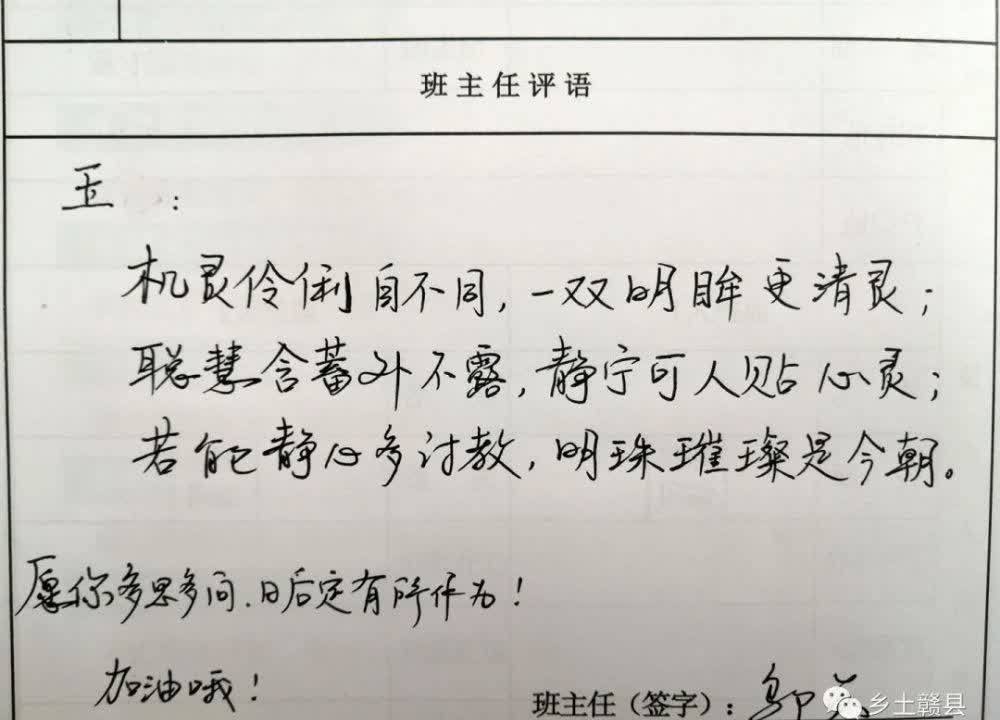 班主任评语
玉 :
机灵伶俐自不同，一双明眸更清灵；
聪慧含蓄外不露，静宁可人贴心灵；
若能静心多讨教，明珠璀璨是今朝。
愿你多思多问、日后定有所作为！
加油哦！
班主任（签字）：邹
乡土赣县